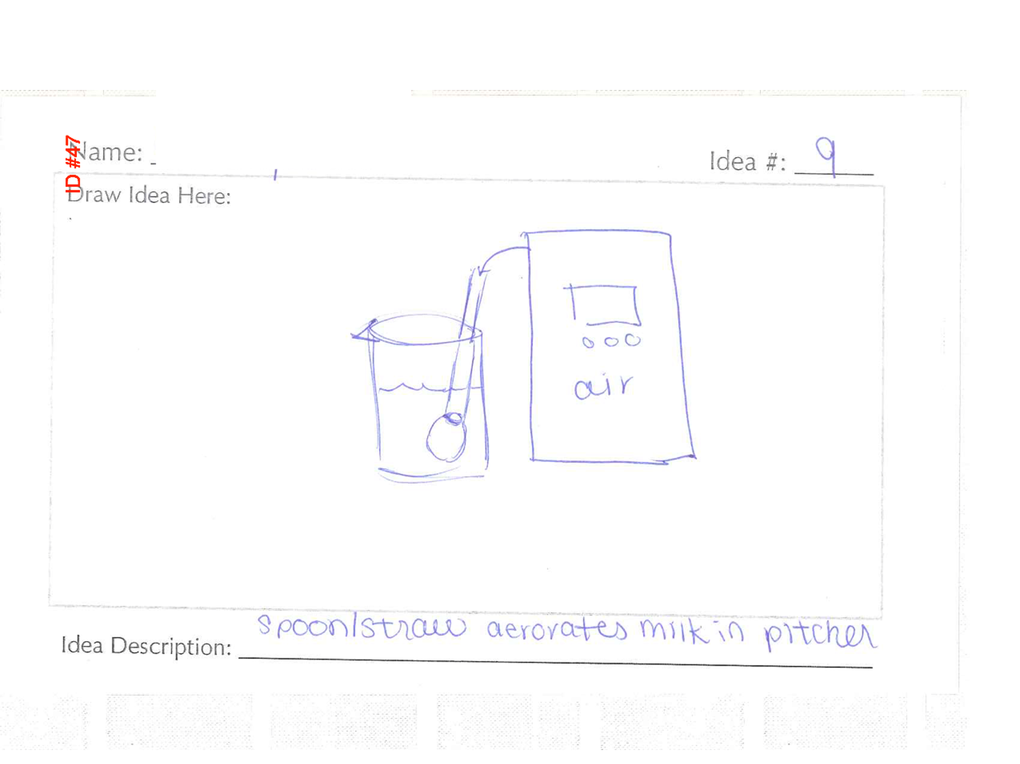 ID #47
Name:
Idea #: 9
Draw Idea Here:
air
Idea Description: spoon/straw aerorates milk in pitcher